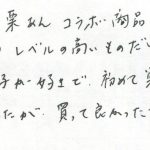 栗あん コラボ 商品
レベルの高いものだい
子が好きで、初めて
たが、買って良かった